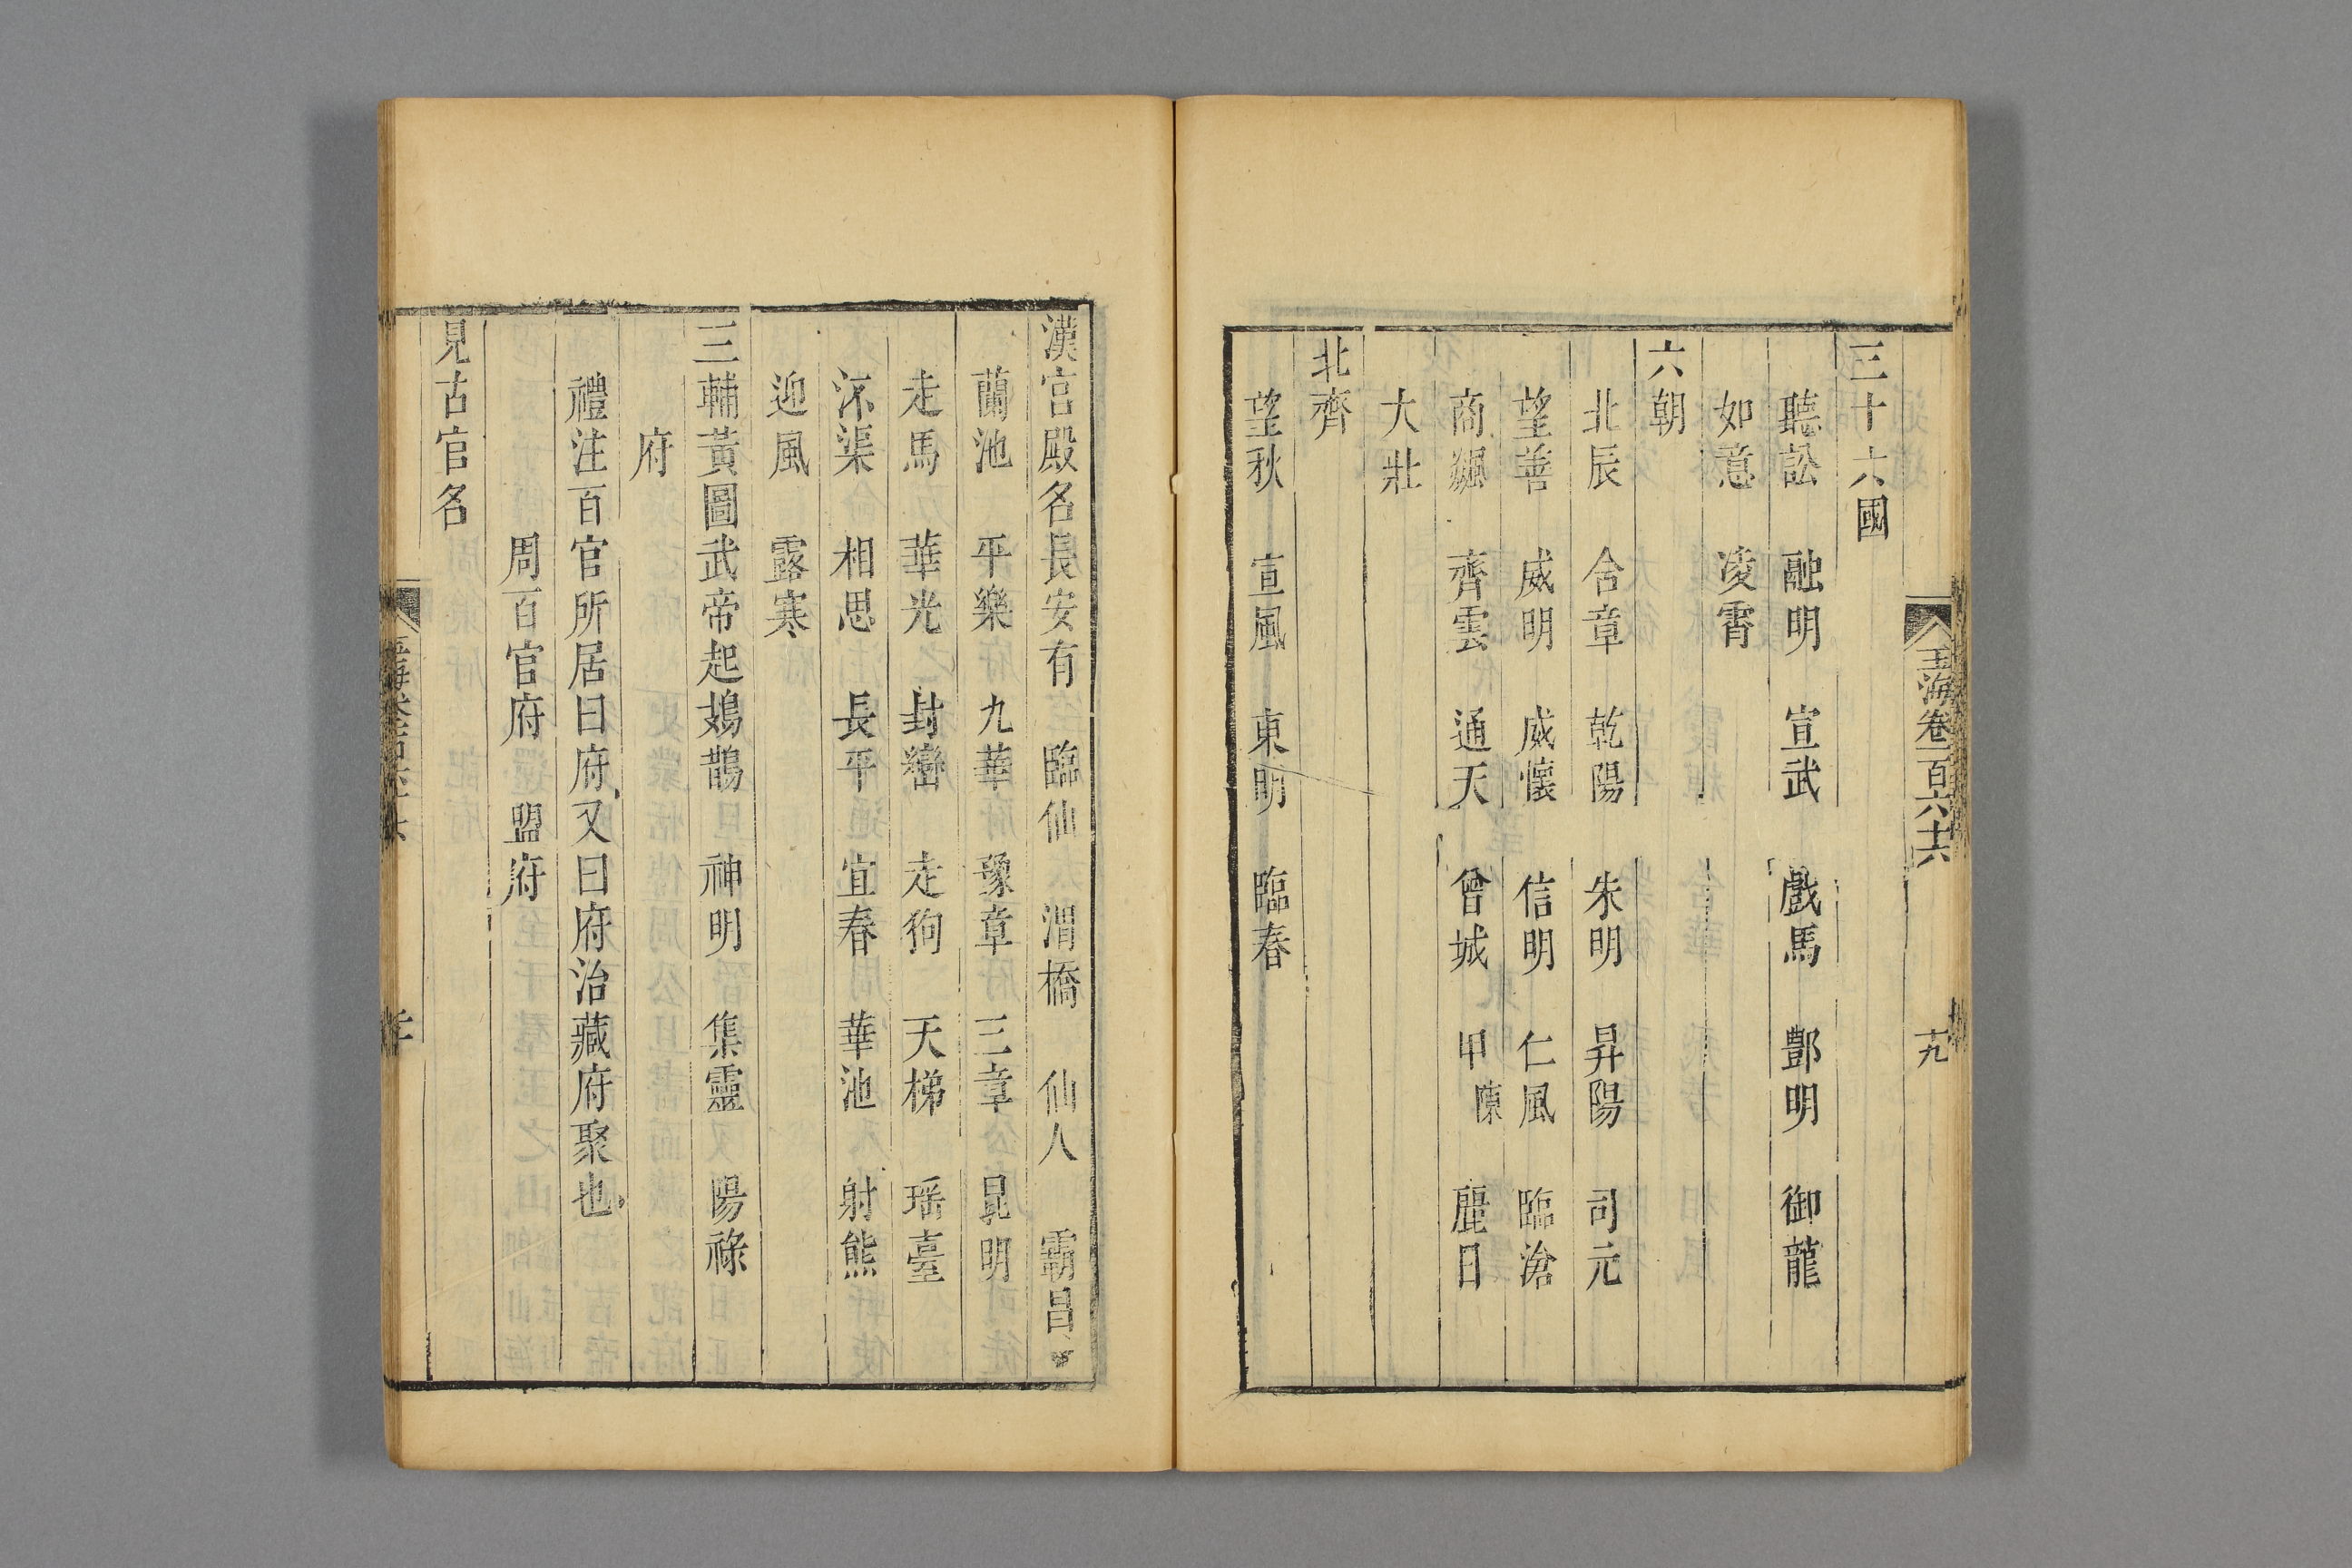 玉海卷一百六十六
十九
三十六國
聽訟 融明 宣武 戲馬 酆明 御龍
如意 凌霄
六朝
北辰 合章 乾陽 朱明 昇陽 司元
望善 威明 威懷 信明 仁風 臨滄
商飇 齊雲 通天 曾城 甲 陳 麗日
大壯
北齊
望秋 宣風 東明 臨春
漢宮殿名長安有 臨仙 渭橋 仙人 霸昌
蘭池 平樂 九華 豫章 三章 昆明
走馬 華光 封巒 走狗 天梯 瑶臺
涿渠 相思 長平 宜春 華池 射熊
迎風 露寒
三輔黃圖武帝起鳷鵲 神明 集靈 陽祿
府
禮注百官所居曰府又曰府治藏府聚也
周百官府 盟府
見古官名